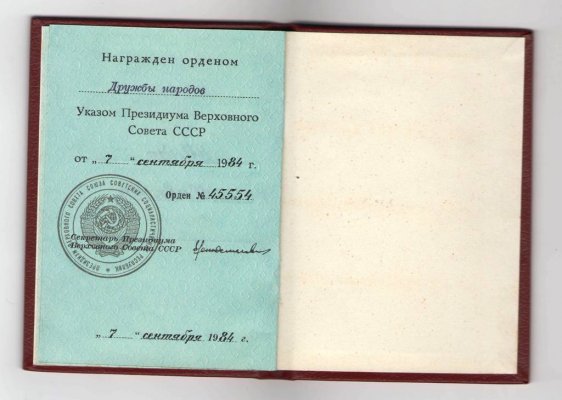 Награжден орденом
Дружбы народов
Указом Президиума Верховного
Совета СССР
от „7“ сентября 1984 г.
Орден № 45554
Секретарь Президиума
Верховного Совета СССР
„7“ сентября 1984 г.
ПРЕЗИДИУМ ВЕРХОВНОГО СОВЕТА СОЮЗА СОВЕТСКИХ СОЦИАЛИСТИЧЕСКИХ РЕСПУБЛИК